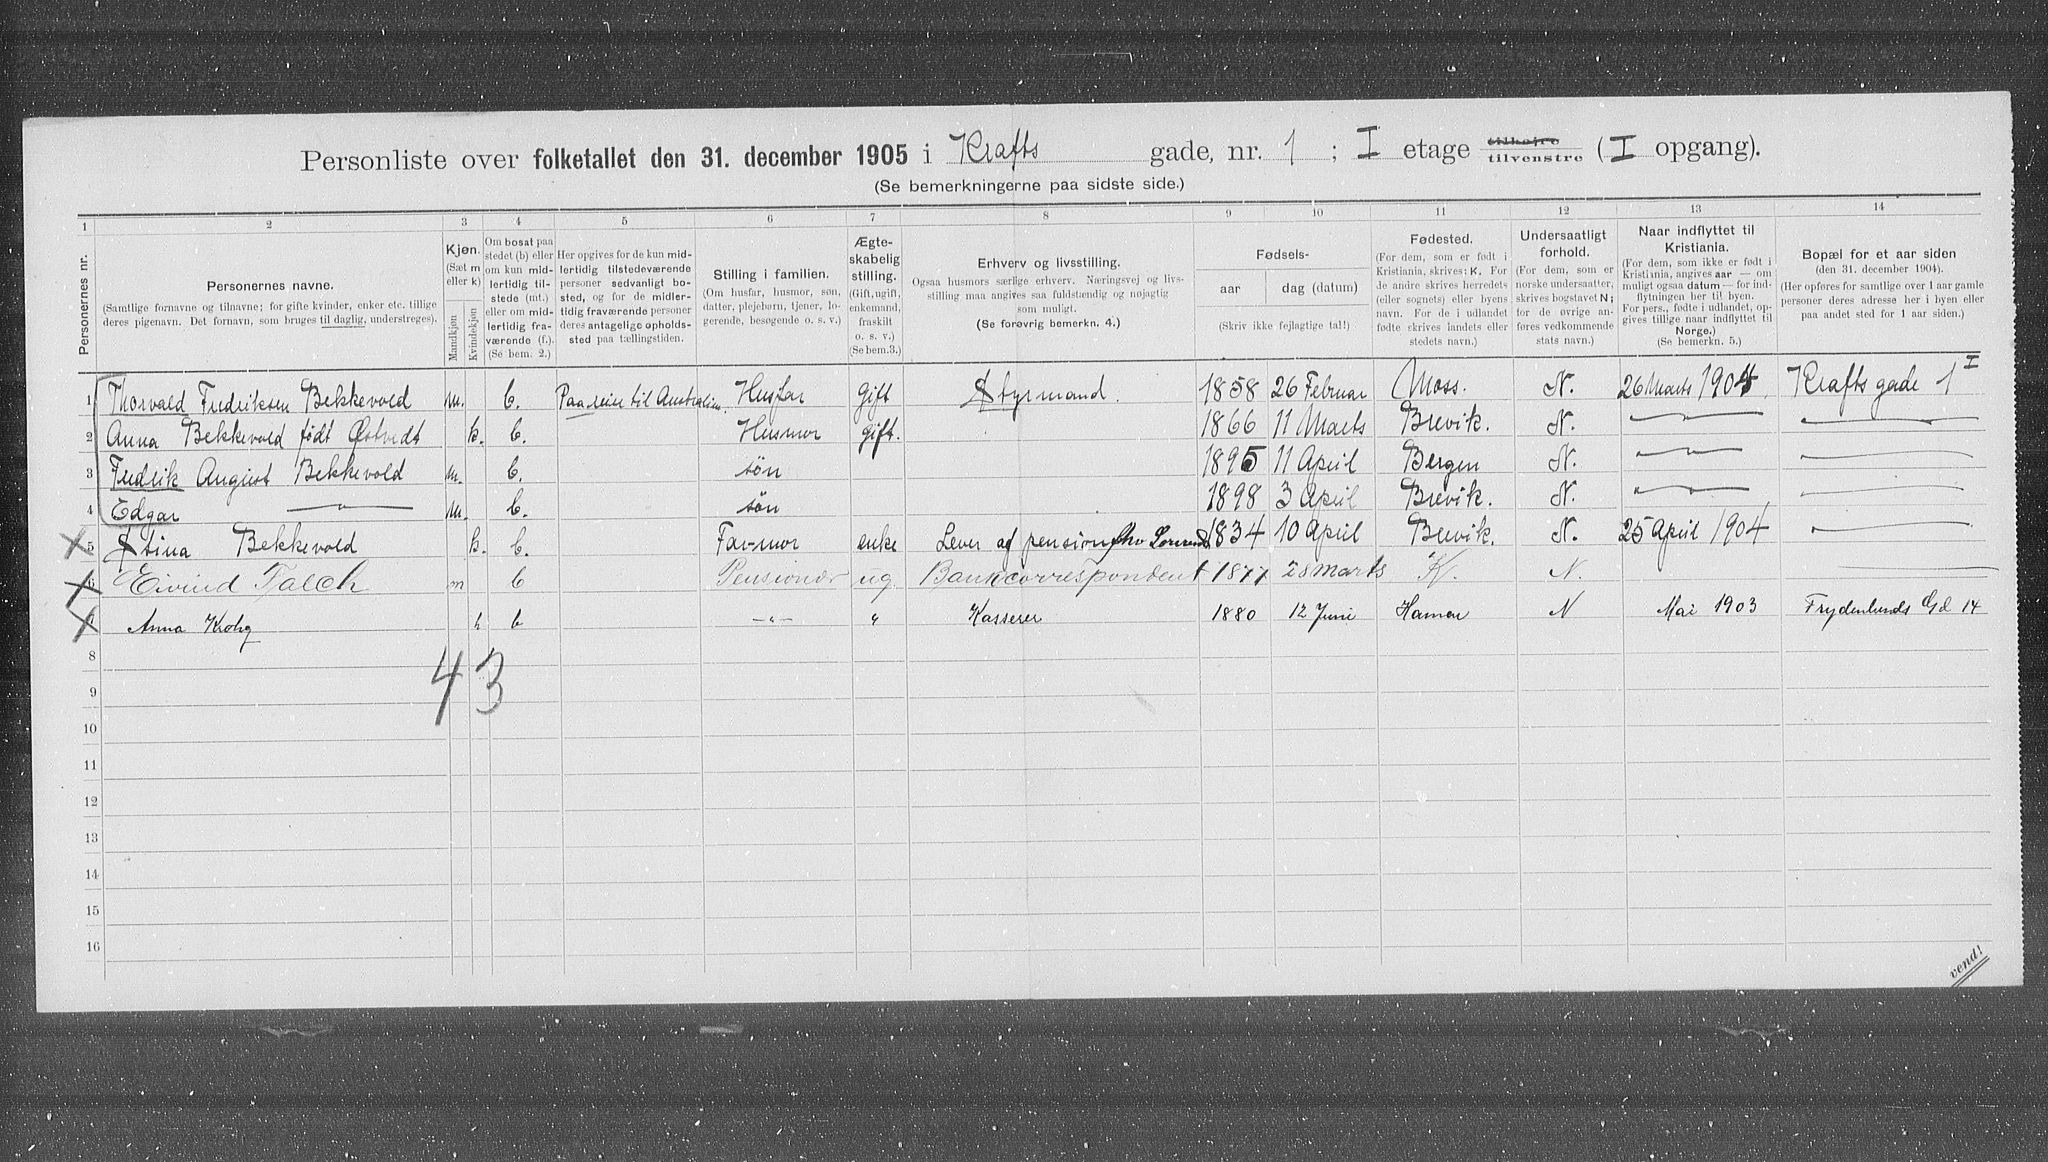 Personliste over folketallet den 31. december 1905 i Krafts gade, nr. 1; I etage tilhøjre tilvenstre (I opgang).
(Se bemerkningerne paa sidste side.)
1 2 3 4 5 6 7 8 9 10 11 12 13 14
Personernes nr.
Personernes navne.
(Samtlige fornavne og tilnavne; for gifte kvinder, enker etc. tillige deres pigenavn. Det fornavn, som bruges til daglig, understreges).
Kjøn.
(Sæt m eller k)
Mandkjøn
Kvindekjøn
Om bosat paa stedet (b) eller om kun midlertidig tilstede (mt.) eller om midlertidig fraværende (f.).
(Se bem. 2.)
Her opgives for de kun midlertidig tilstedeværende personer sedvanligt bosted, og for de midlertidig fraværende personer deres antagelige opholdssted paa tællingstiden.
Stilling i familien.
(Om husfar, husmor, søn, datter, plejebørn, tjener, logerende, besøgende o. s. v.)
Ægteskabelig stilling.
(Gift, ugift, enkemand, fraskilt o. s. v.)
(Se bem.3.)
Erhverv og livsstilling.
Ogsaa husmors særlige erhverv. Næringsvej og livsstilling maa angives saa fuldstændig og nøjagtig som muligt.
(Se forøvrig bemerkn. 4.)
Fødsels-
aar
dag (datum)
(Skriv ikke fejlagtige tal!)
Fødested.
(For dem, som er født i Kristiania, skrives: K. For de andre skrives herredets (eller sognets) eller byens navn. For de i udlandet fødte skrives landets eller stedets navn.)
Undersaatligt forhold.
(For dem, som er norske undersaatter, skrives bogstavet N; for de øvrige anføres vedkommende stats navn.)
Naar indflyttet til Kristiania.
(For dem, som ikke er født i Kristiania, angives aar — om muligt ogsaa datum — for indflytningen her til byen. For pers., fødte i udlandet, opgives tillige naar indflyttet til Norge.)
(Se bemerkn. 5.)
Bopæl for et aar siden
(den 31. december 1904).
(Her opføres for samtlige over 1 aar gamle personer deres adresse her i byen eller paa andet sted for 1 aar siden.)
1 Thorvald Fredriksen Bekkevold m. b. Paa reise til Australien Husfar Gift Styrmand. 1858 26 Februar Moss. N. 26 Marts 1904 Krafts gade 1 I
2 Anna Bekkevold født Østvedt k. b. Husmor gift. 1866 11 Marts Brevik. N. — —
3 Fredrik August Bekkevold m. b. søn 1895 11 April Bergen N. — —
4 Edgar — m. b. søn 1898 3 April Brevik. N. — —
5 Stina Bekkevold k. b. Farmor enke Lever af pension 1834 10 April Brevik. N. 25 April 1904 —
6 Eivind Falch m b Pensionær ug Bankcorrespondent 1877 28 Marts K. N. —
7 Anna Krohg k b —"— " Kasserer 1880 12 Juni Hamar N Mai 1903 Frydenlunds Gd 14
8
4 3
9
10
11
12
13
14
15
16
vend!